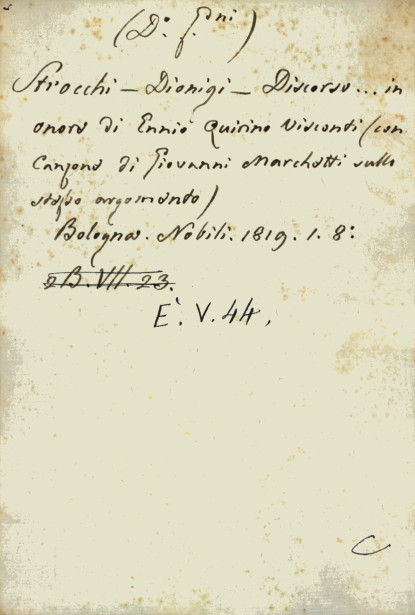 (D.º f. Ẽni)
Strocchi — Dionigi — Discorso... in
onore di Ennio Quirino Visconti (con
Canzone di Giovanni Marchetti sullo
stesso argomento)
Bologna. Nobili. 1819. 1. 8:
2B. VII. 23.
E'. V. 44,
C